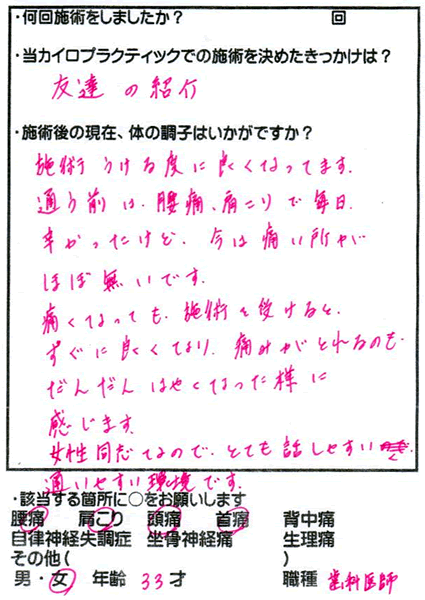 ・何回施術をしましたか？ 回
・当カイロプラクティックでの施術を決めたきっかけは？
友達の紹介
・施術後の現在、体の調子はいかがですか？
施術うける度に良くなってます.
通う前は、腰痛、肩こりで毎日.
辛かったけど、今は痛い所が
ほぼ無いです.
痛くなっても、施術を受けると、
すぐに良くなり、痛みがとれるのも
だんだんはやくなった様に
感じます.
女性同士なので、とても話しやすい
通いやすい環境です.
・該当する箇所に○をお願いします
腰痛 肩こり 頭痛 首痛 背中痛
自律神経失調症 坐骨神経痛 生理痛
その他( )
男・女 年齢 33才 職種 歯科医師